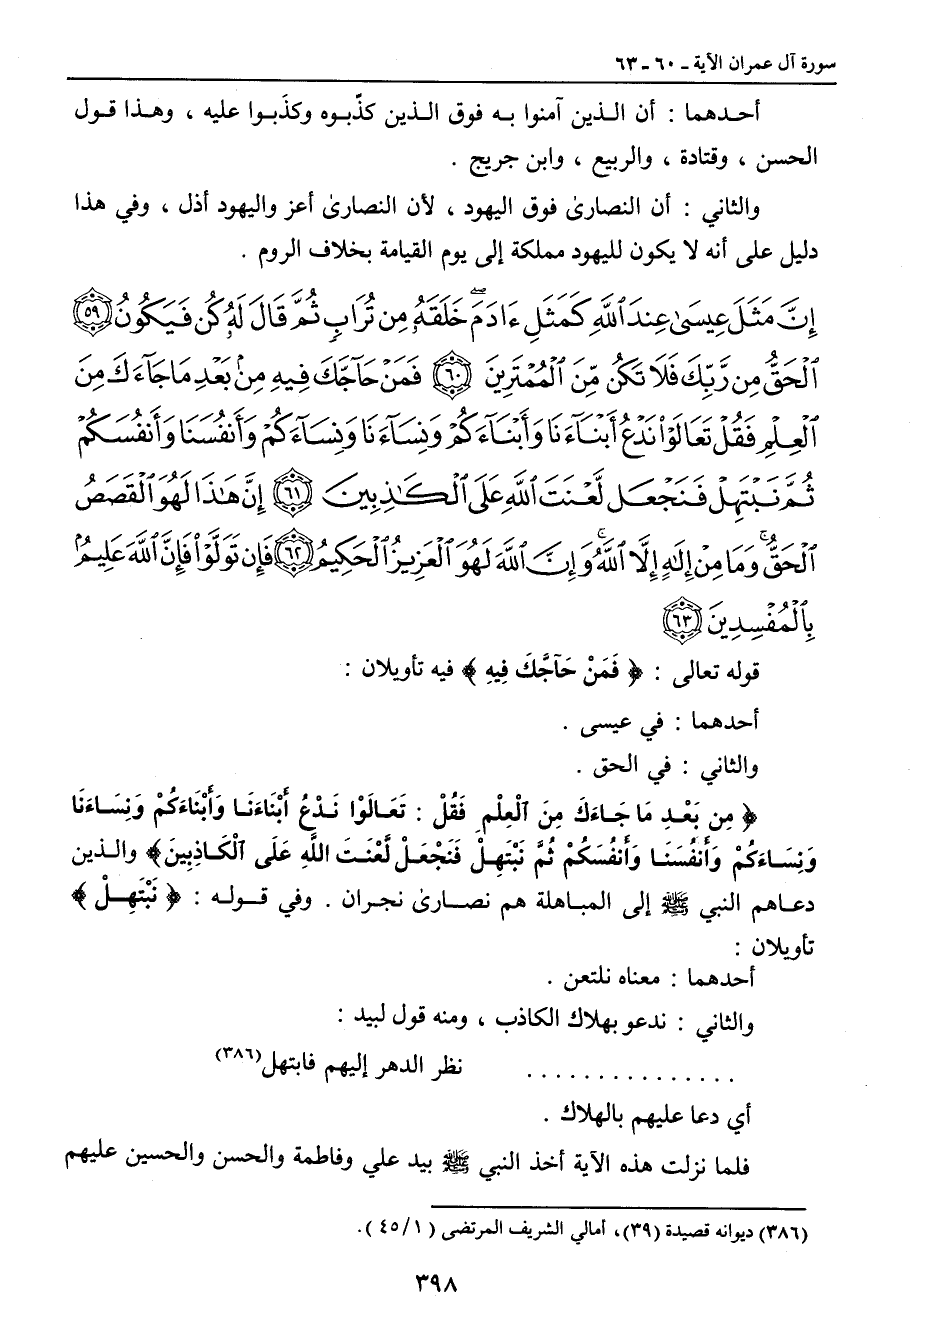 سورة آل عمران الآية ـ ٦٠ ـ ٦٣
أحدهما : أن الذين آمنوا به فوق الذين كذّبوه وكذَبوا عليه ، وهذا قول
الحسن ، وقتادة ، والربيع ، وابن جريج .
والثاني : أن النصارىٰ فوق اليهود ، لأن النصارىٰ أعز واليهود أذل ، وفي هذا
دليل على أنه لا يكون لليهود مملكة إلى يوم القيامة بخلاف الروم .
إِنَّ مَثَلَ عِيسَىٰ عِندَ ٱللَّهِ كَمَثَلِ ءَادَمَۖ خَلَقَهُۥ مِن تُرَابٍ ثُمَّ قَالَ لَهُۥ كُن فَيَكُونُ ٥٩
ٱلْحَقُّ مِن رَّبِّكَ فَلَا تَكُن مِّنَ ٱلْمُمْتَرِينَ ٦٠ فَمَنْ حَآجَّكَ فِيهِ مِنۢ بَعْدِ مَا جَآءَكَ مِنَ
ٱلْعِلْمِ فَقُلْ تَعَالَوْاْ نَدْعُ أَبْنَآءَنَا وَأَبْنَآءَكُمْ وَنِسَآءَنَا وَنِسَآءَكُمْ وَأَنفُسَنَا وَأَنفُسَكُمْ
ثُمَّ نَبْتَهِلْ فَنَجْعَل لَّعْنَتَ ٱللَّهِ عَلَى ٱلْكَٰذِبِينَ ٦١ إِنَّ هَٰذَا لَهُوَ ٱلْقَصَصُ
ٱلْحَقُّۚ وَمَا مِنْ إِلَٰهٍ إِلَّا ٱللَّهُۚ وَإِنَّ ٱللَّهَ لَهُوَ ٱلْعَزِيزُ ٱلْحَكِيمُ ٦٢ فَإِن تَوَلَّوْاْ فَإِنَّ ٱللَّهَ عَلِيمٌۢ
بِٱلْمُفْسِدِينَ ٦٣
قوله تعالى : ﴿ فَمَنْ حَآجَّكَ فِيهِ ﴾ فيه تأويلان :
أحدهما : في عيسى .
والثاني : في الحق .
﴿ مِن بَعْدِ مَا جَاءَكَ مِنَ ٱلْعِلْمِ فَقُلْ : تَعَالَوْا نَدْعُ أَبْنَاءَنَا وَأَبْنَاءَكُمْ وَنِسَاءَنَا
وَنِسَاءَكُمْ وَأَنفُسَنَا وَأَنفُسَكُمْ ثُمَّ نَبْتَهِلْ فَنَجْعَلْ لَّعْنَتَ اللَّهِ عَلَى ٱلْكَاذِبِينَ﴾ والذين
دعاهم النبي ﷺ إلى المباهلة هم نصارىٰ نجران . وفي قوله : ﴿ نَبْتَهِلْ ﴾
تأويلان :
أحدهما : معناه نلتعن .
والثاني : ندعو بهلاك الكاذب ، ومنه قول لبيد :
. . . . . . . . . . . . . . . نظر الدهر إليهم فابتهل(٣٨٦)
أي دعا عليهم بالهلاك .
فلما نزلت هذه الآية أخذ النبي ﷺ بيد علي وفاطمة والحسن والحسين عليهم
(٣٨٦) ديوانه قصيدة (٣٩)، أمالي الشريف المرتضى ( ١/ ٤٥ ).
٣٩٨